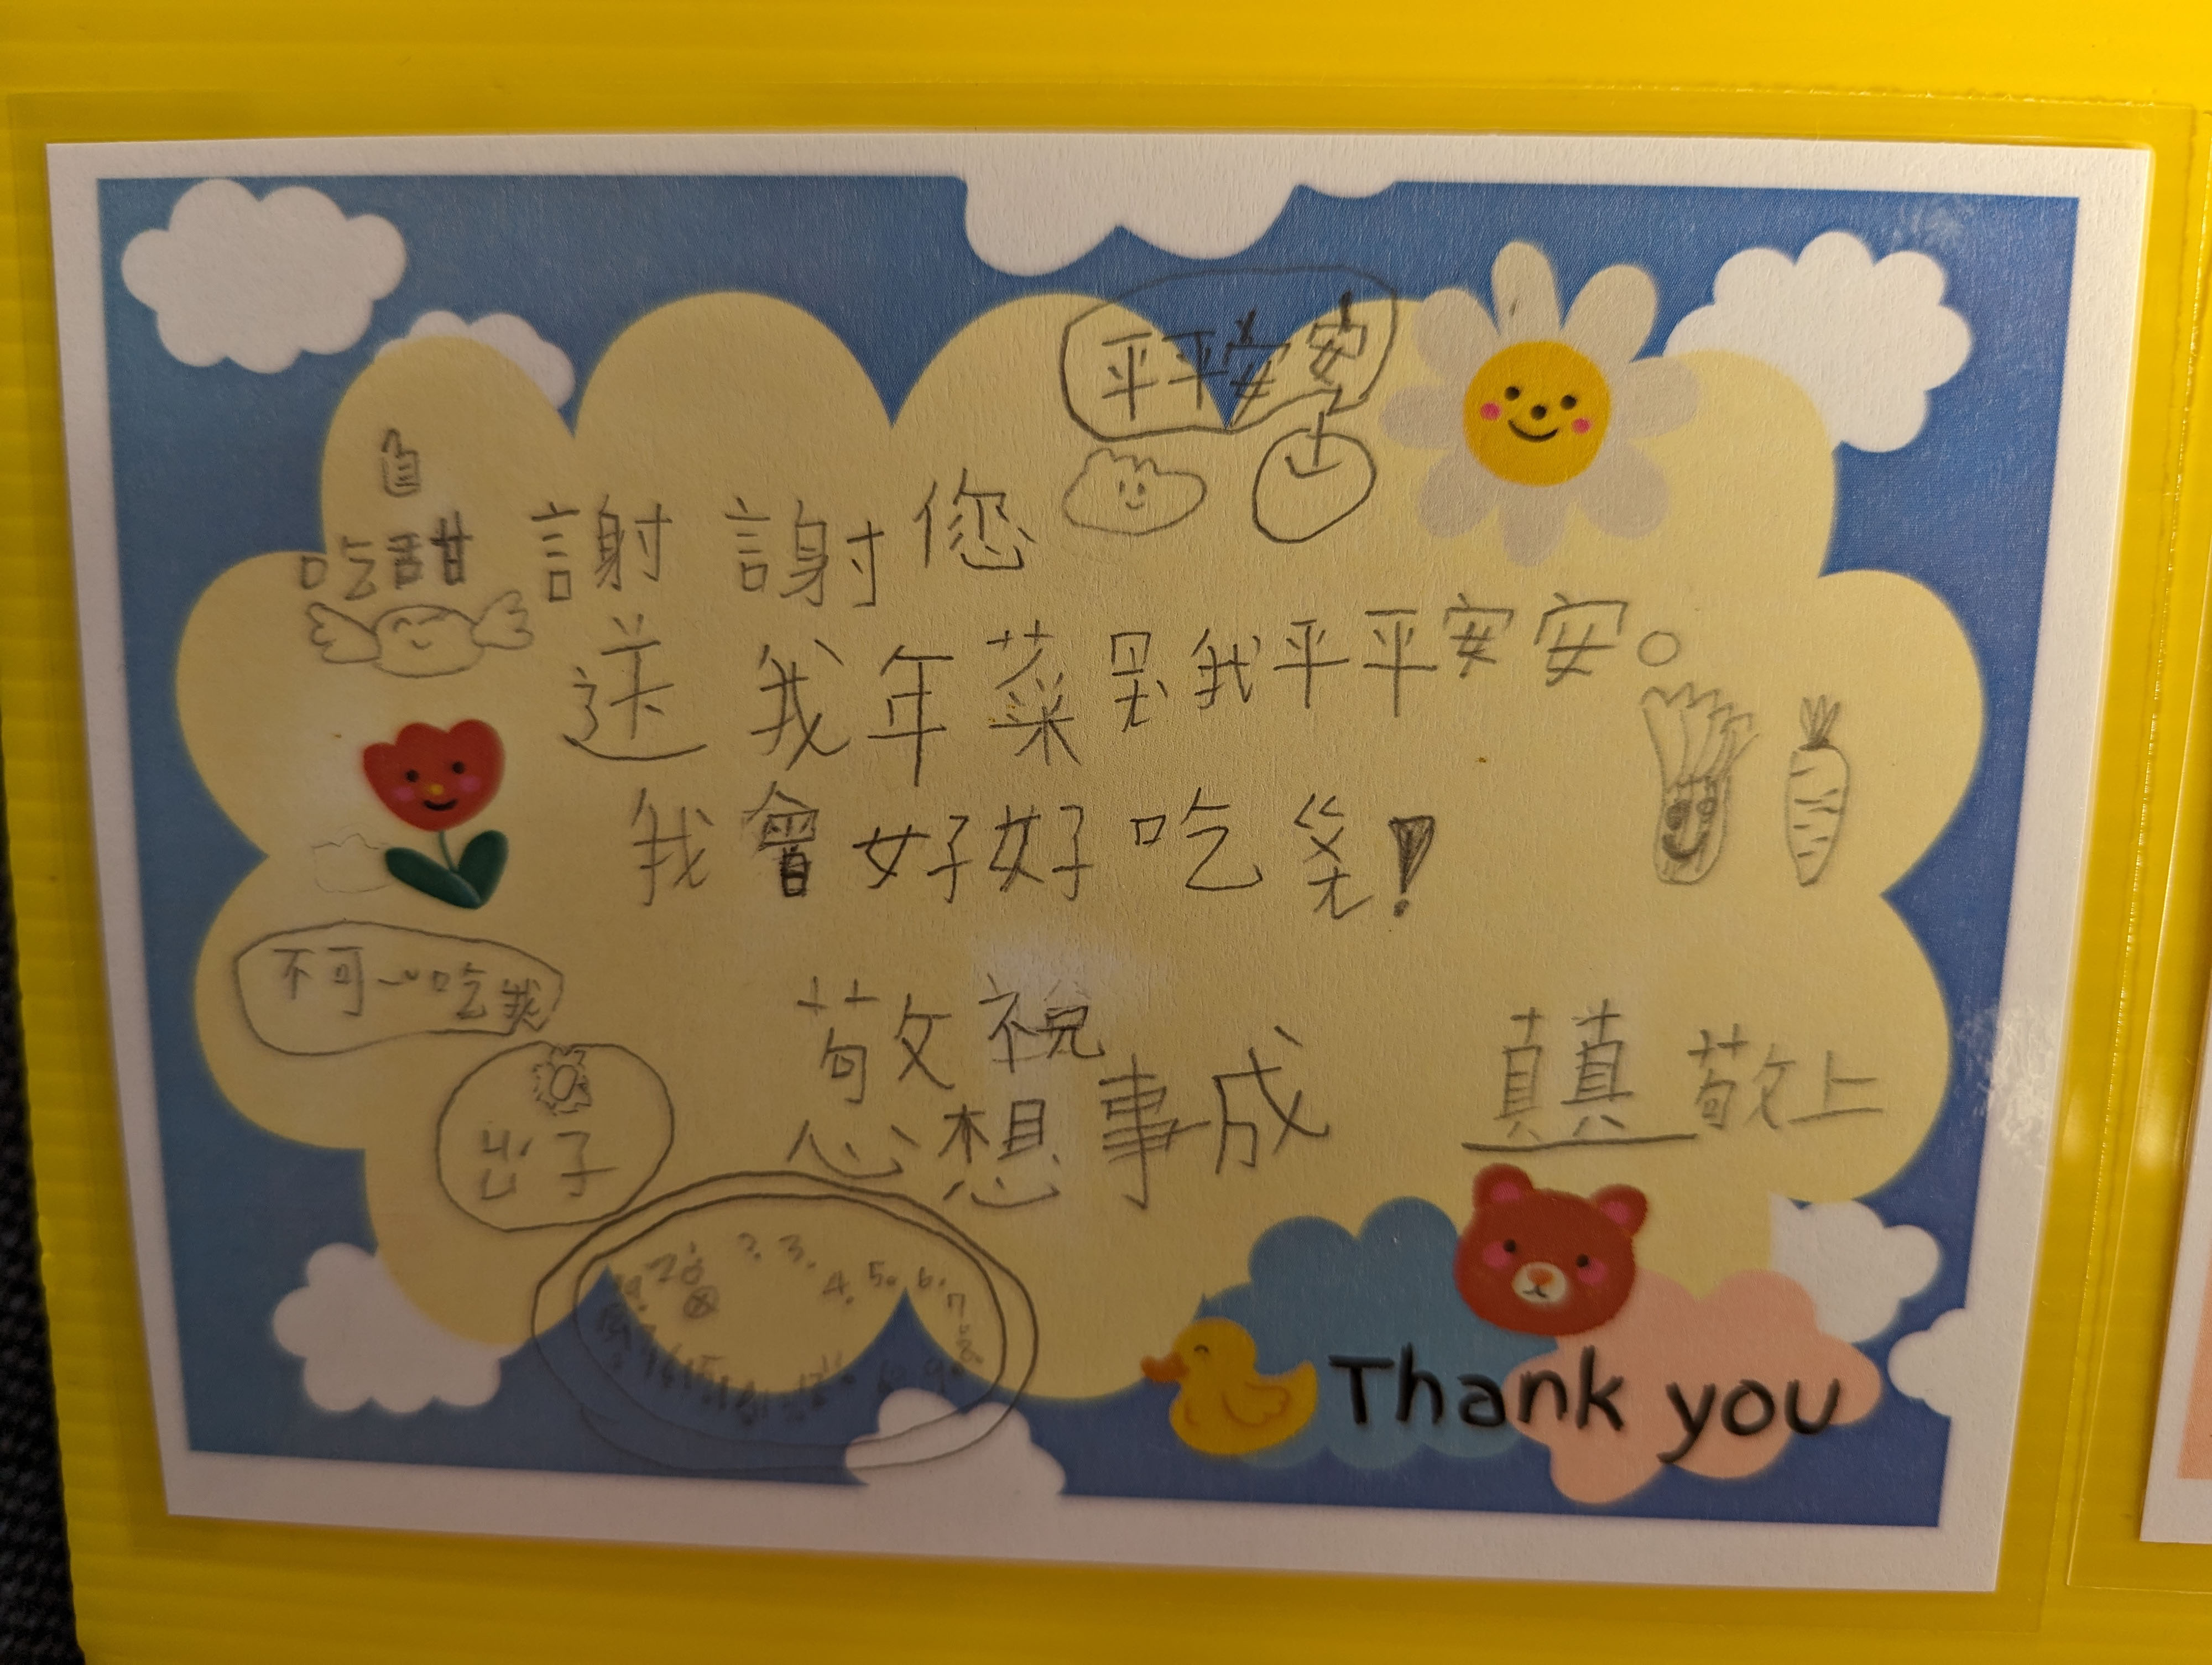 平平安安
吃甜
謝謝您
送我年菜吳我平平安安。
我會好好吃完!
不可以吃我
出子
敬祝
心想事成
真真敬上
2. 3. 4. 5. 6. 7. 8. 9.
Thank you